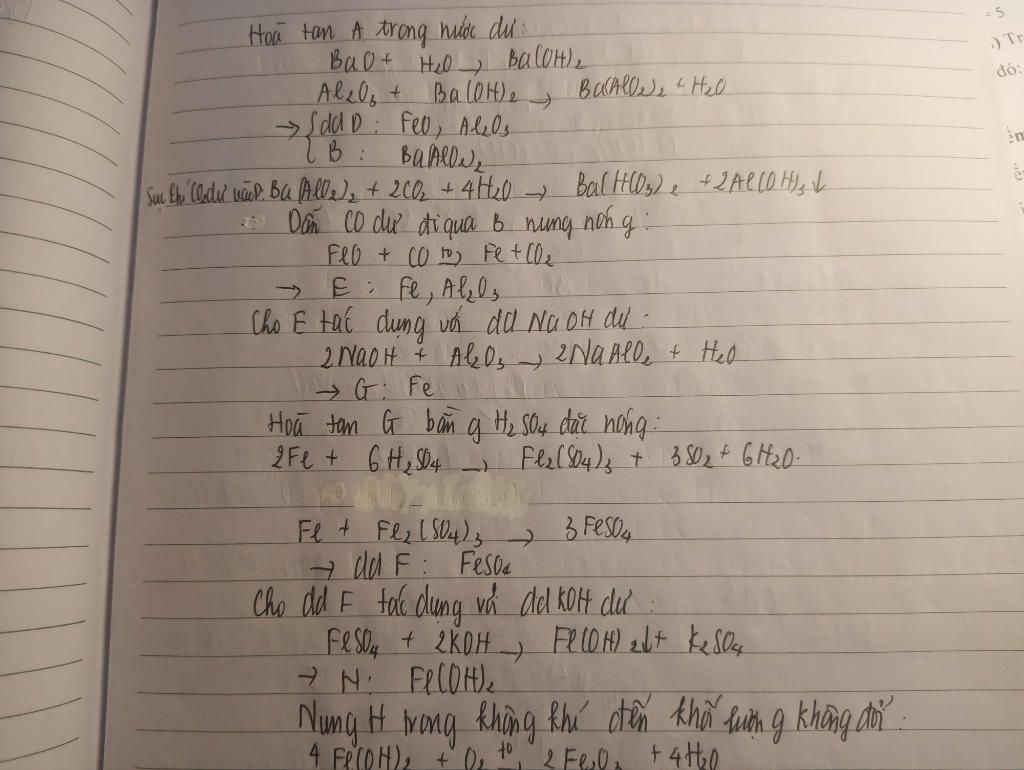 Hoà tan A trong nước dư:
BaO + H2O → Ba(OH)2
Al2O3 + Ba(OH)2 → Ba(AlO2)2 + H2O
→ { dd D : FeO, Al2O3
B : Ba(AlO2)2
Sục khí CO2 dư vào D. Ba(AlO2)2 + 2CO2 + 4H2O → Ba(HCO3)2 + 2Al(OH)3↓
Dẫn CO dư đi qua B nung nóng:
FeO + CO t°→ Fe + CO2
→ E : Fe, Al2O3
Cho E tác dụng với dd NaOH dư:
2NaOH + Al2O3 → 2NaAlO2 + H2O
→ G : Fe
Hoà tan G bằng H2SO4 đặc nóng:
2Fe + 6H2SO4 → Fe2(SO4)3 + 3SO2 + 6H2O.
Fe + Fe2(SO4)3 → 3FeSO4
→ dd F : FeSO4
Cho dd F tác dụng với dd KOH dư:
FeSO4 + 2KOH → Fe(OH)2↓ + K2SO4
→ H : Fe(OH)2
Nung H trong không khí đến khối lượng không đổi:
4Fe(OH)2 + O2 t°→ 2Fe2O3 + 4H2O
= 5
.) Tr
đó: